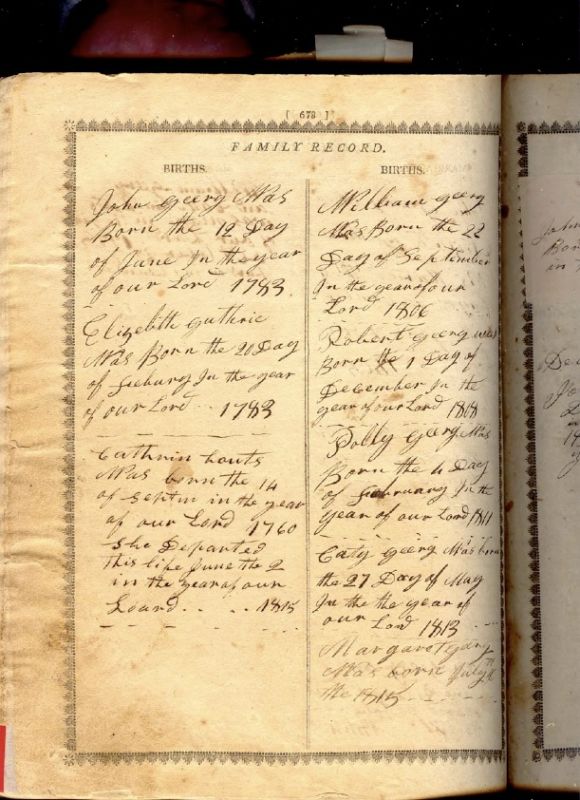 [ 678 ]
FAMILY RECORD.
BIRTHS.
John Georg Was
Born the 12 Day
of June In the year
of our Lord 1783
Elizebth Guthrie
Was Born the 20 Day
of Feebury In the year
of our Lord .. 1783
Cathrin Louts
Was born the 14
of Septm in the year
of our Lord 1760
She Departed
this life June the 2
in the year of our
Loard . . . . 1815
BIRTHS.
William Georg
Was Born the 22
Day of September
In the year of our
Lord 1806
Robert Georg was
Born the 1 Day of
December In the
year of our Lord 1808
Polly Georg Was
Born the 4 Day
of February In the
year of our Lord 1811
Caty Georg Was born
the 27 Day of May
In the the year of
our Lord 1813
Margaret Georg
Was born July
the 1815
John
Born
in